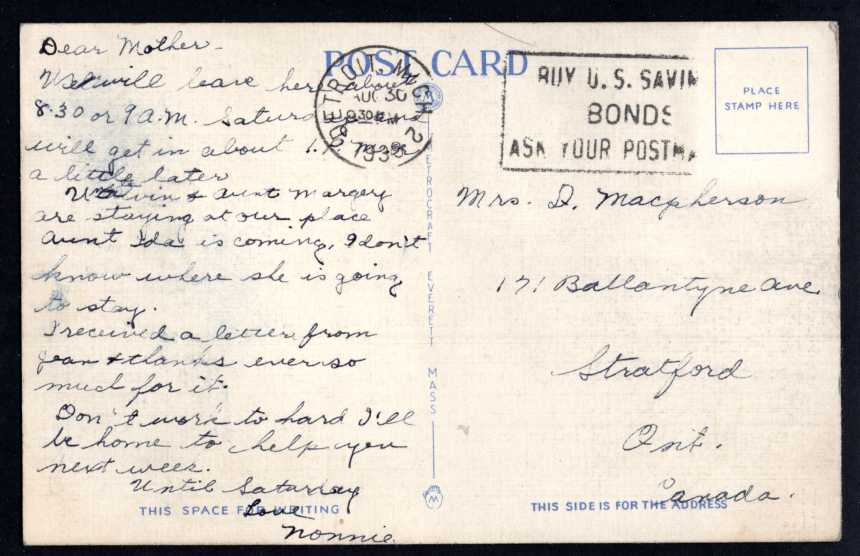 Dear Mother-
We will leave here about
8.30 or 9 A.M. Saturday and
will get in about 1. P. M. or
a little later
& Aunt Margery
are staying at our place
Aunt Ida is coming, I don't
know where she is going
to stay.
I received a letter from
Jean & thanks ever so
much for it.
Don't work to hard I'll
be home to help you
next week.
Until Saturday
Love
Nonnie
THIS SPACE FOR WRITING
POST CARD
DETROIT, MICH. 2
AUG 30
PM
METROCRAFT EVERETT MASS
M
BUY U.S. SAVIN
BONDS
ASK YOUR POSTMA
PLACE
STAMP HERE
Mrs. D. Macpherson
171 Ballantyne Ave
Stratford
Ont.
Canada.
THIS SIDE IS FOR THE ADDRESS